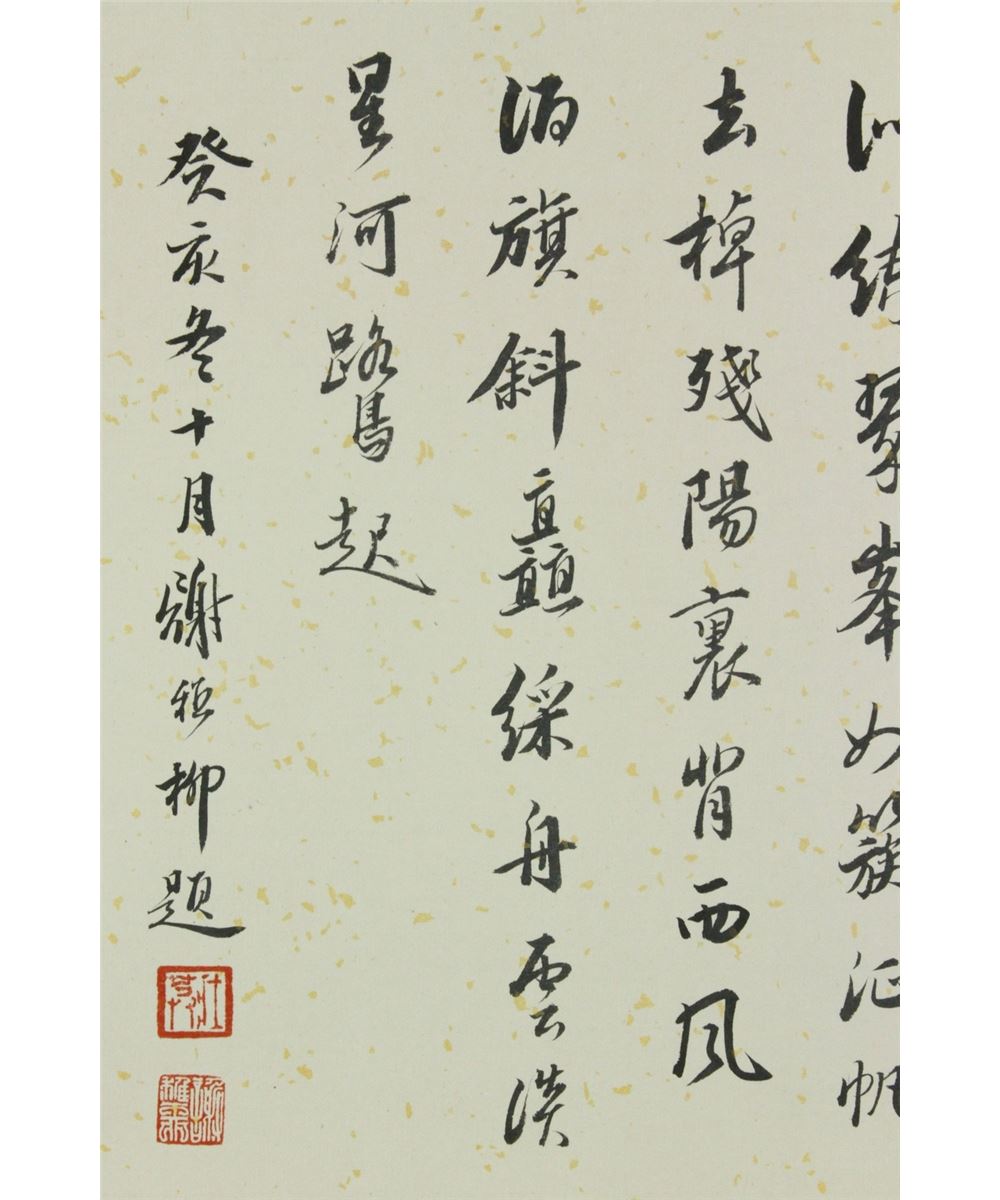 似練翠峯如簇征帆
去棹殘陽裏背西風
酒旗斜矗綵舟雲淡
星河鷺起
癸亥冬十月謝稚柳題
謝稚柳